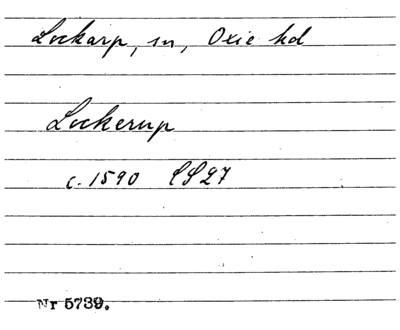 Lockarp, sn, Oxie hd
Lockerup
c. 1590 LS27
Nr 5739.